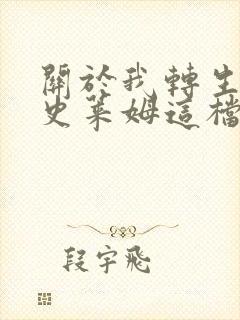 關於我轉生
史萊姆這檔
段宇飛